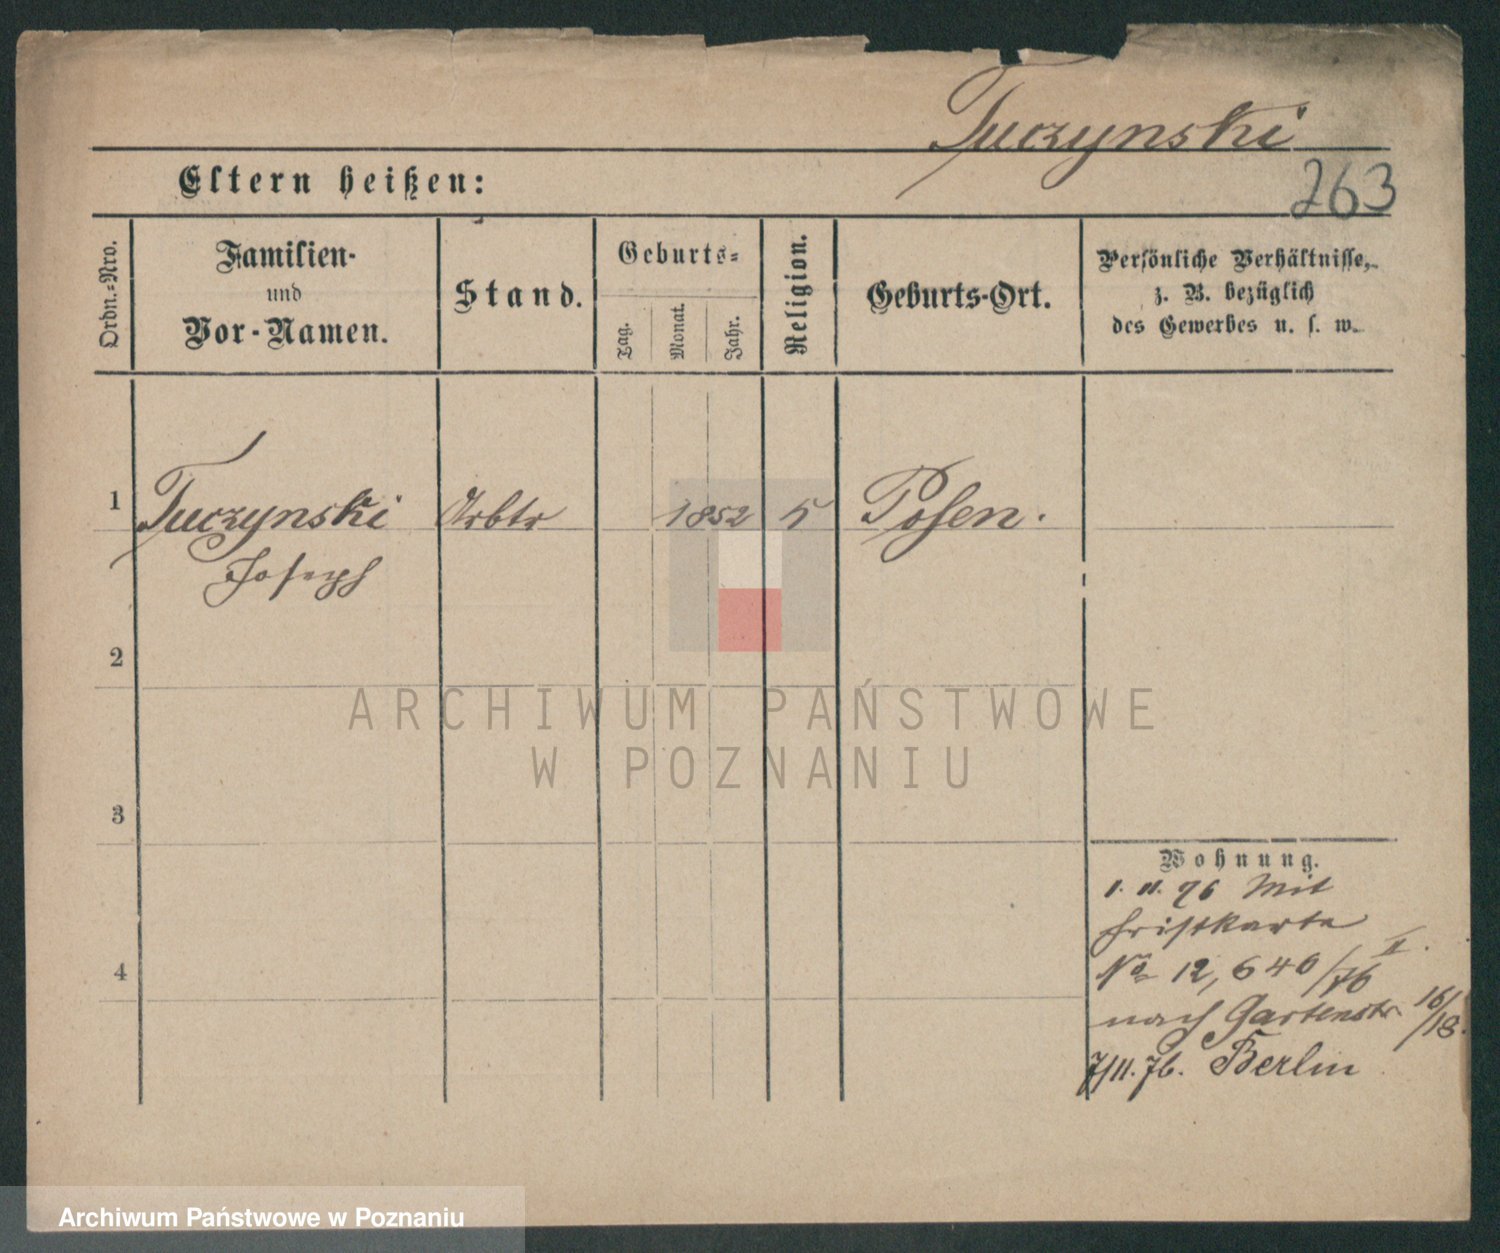 Tuczynski
263
Eltern heißen:
Ordn.=Nro.
Familien-
und
Vor-Namen.
Stand.
Geburts=
Tag.
Monat.
Jahr.
Religion.
Geburts-Ort.
Persönliche Verhältnisse,
z. B. bezüglich
des Gewerbes u. s. w.
1
Tuczynski Arbtr 1852 Posen.
Joseph
2
ARCHIWUM PAŃSTWOWE
W POZNANIU
3
Wohnung.
1. 11. 76 Mit
Fristkarte
No 12,640/76 II.
4
nach Gartenstr 16/18.
7/11. 76. Berlin
Archiwum Państwowe w Poznaniu